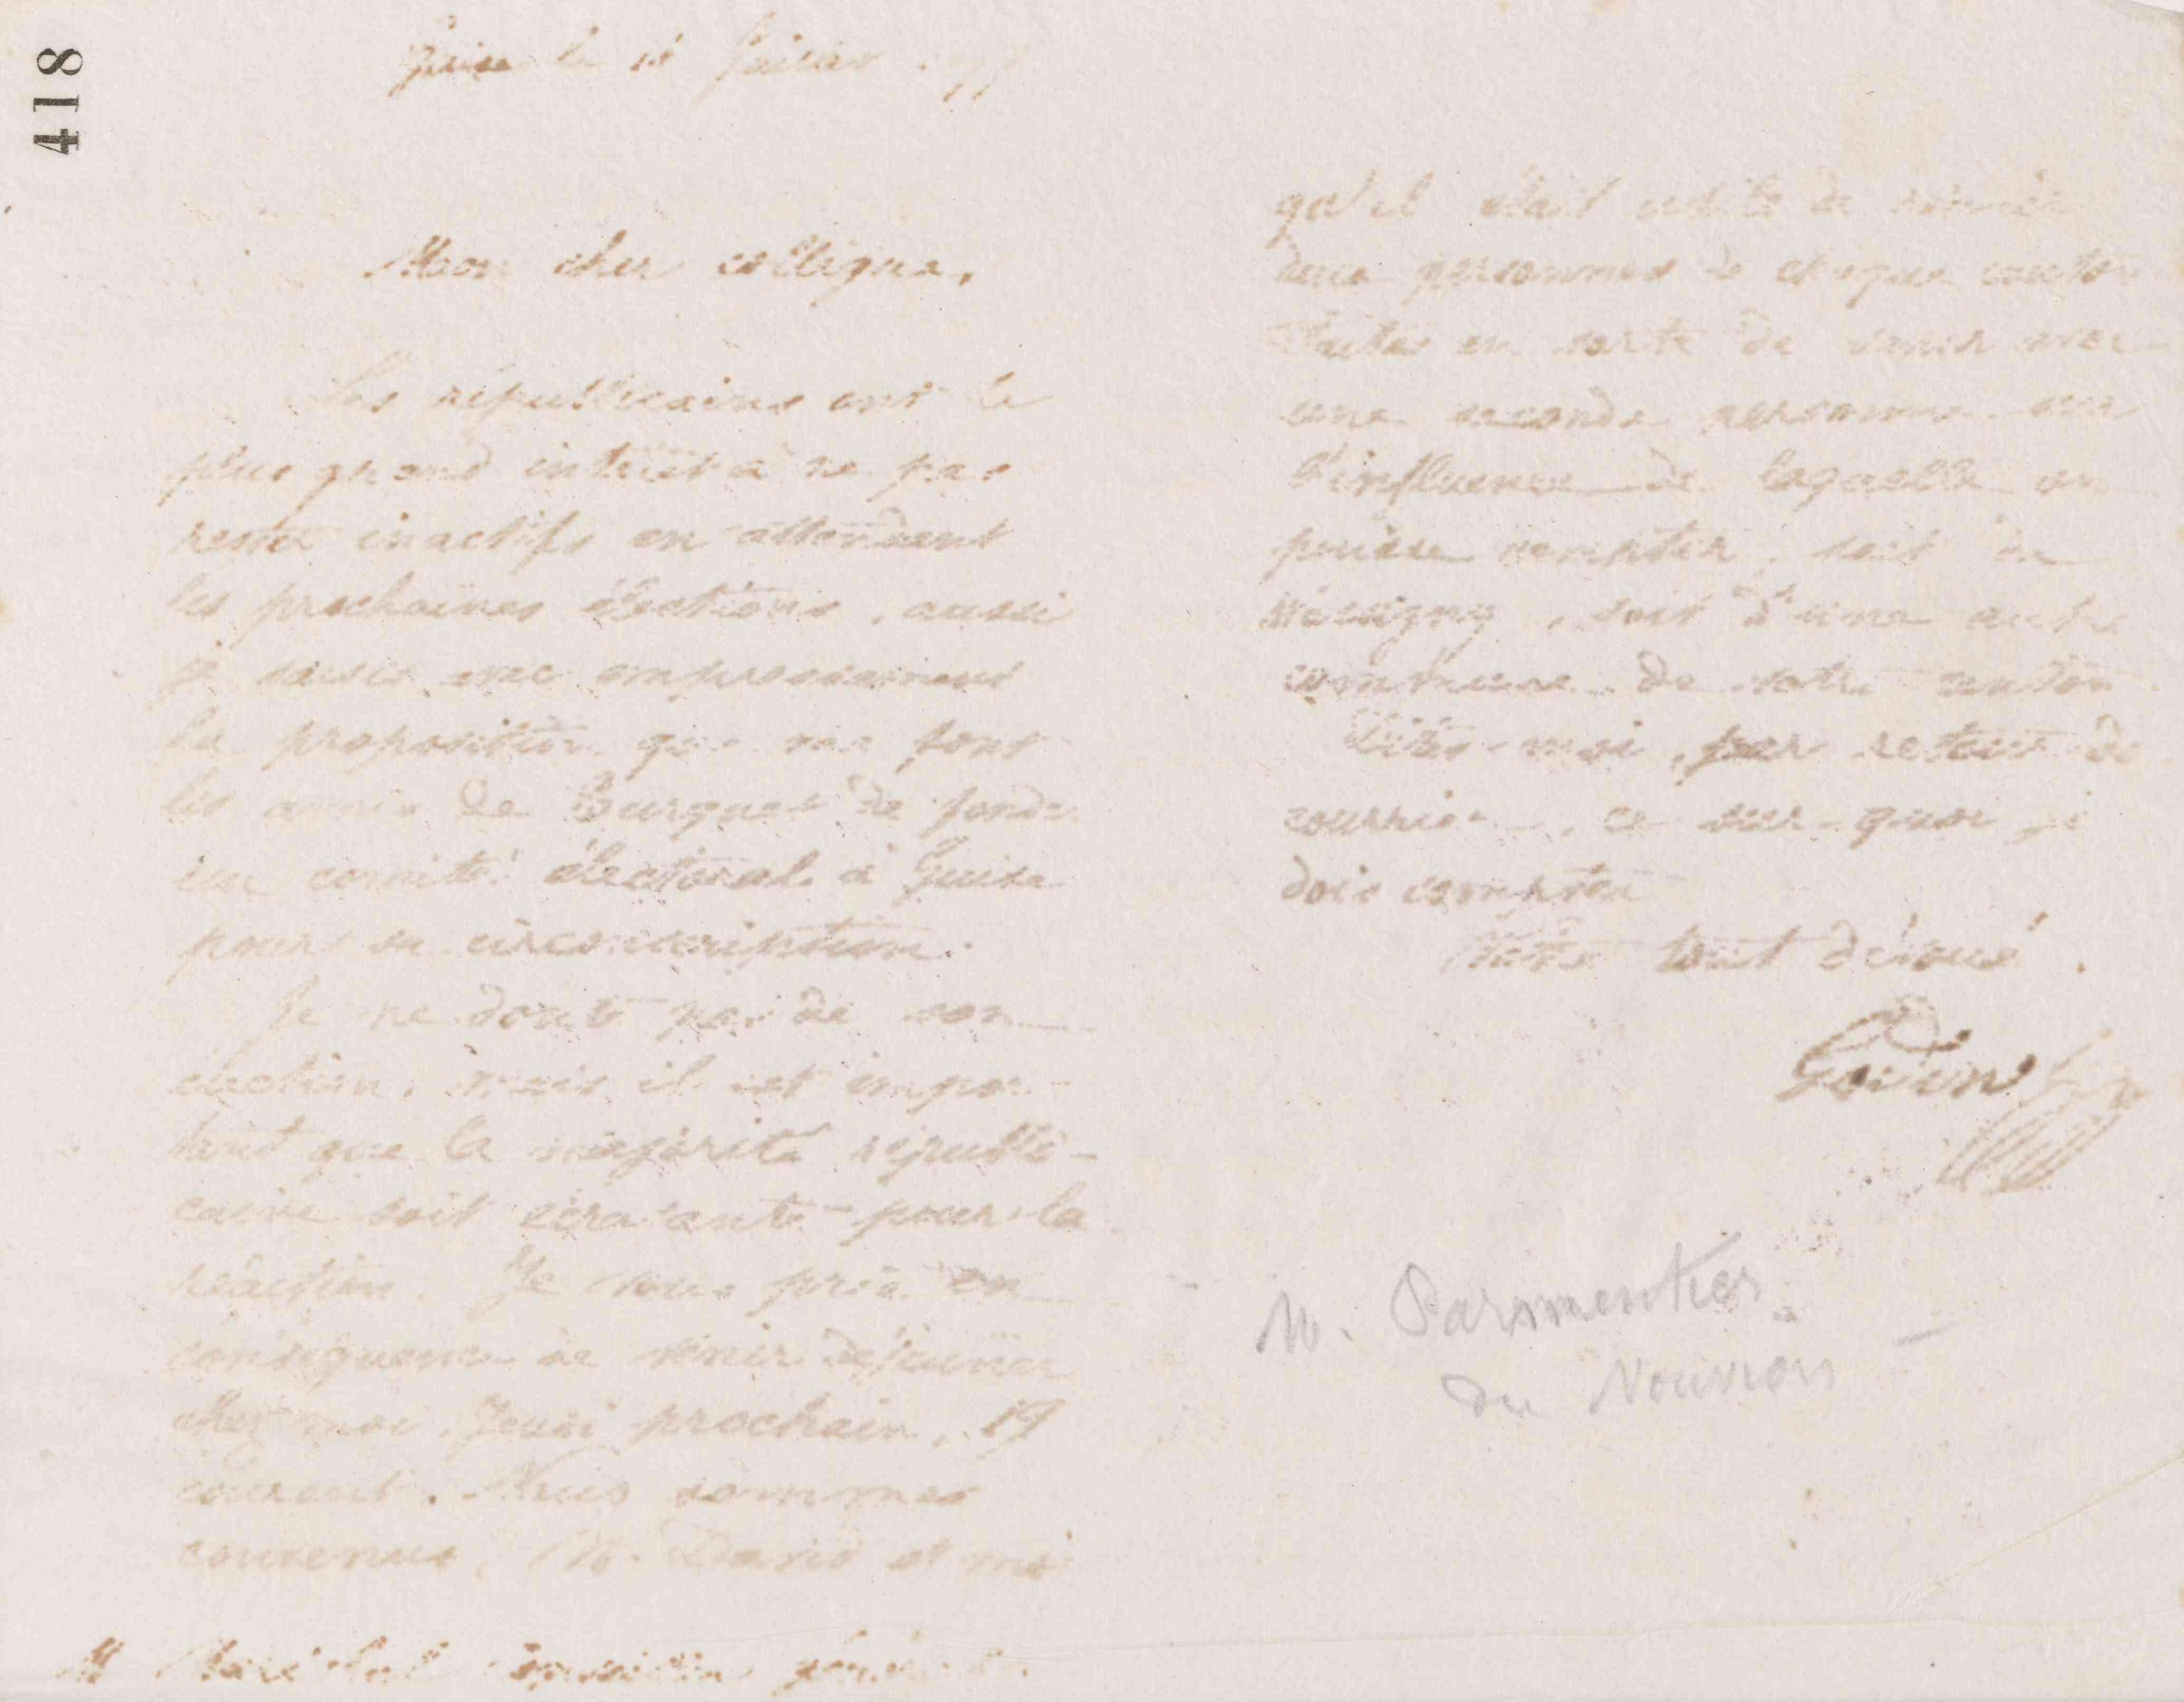 418
Guise le Juillet 77
Mon cher collègue,
Les républicains ont le
plus grand intérêt à ne pas
rester inactifs en attendant
les prochaines élections, aussi
je saisis avec empressement
la proposition que me font
les amis de Turquet de fonder
un comité électoral à Guise
pour sa circonscription.
Je ne doute pas de son
élection, mais il est impor-
tant que la majorité républi-
caine soit écrasante pour la
réaction. Je vous prie en
conséquence de venir déjeuner
chez moi, Jeudi prochain, 19
courant. Nous sommes
convenus, M. et moi
M Maréchal Conseiller général
qu'il était utile de réunir
deux personnes de chaque canton
Faites en sorte de venir avec
une seconde personne sur
l'influence de laquelle on
puisse compter, soit de
soit d'une autre
commune de votre canton.
Dites-moi, par retour de
courrier, ce sur quoi je
dois compter
Votre tout dévoué.
Godin
M. Parmentier
du Nouvion